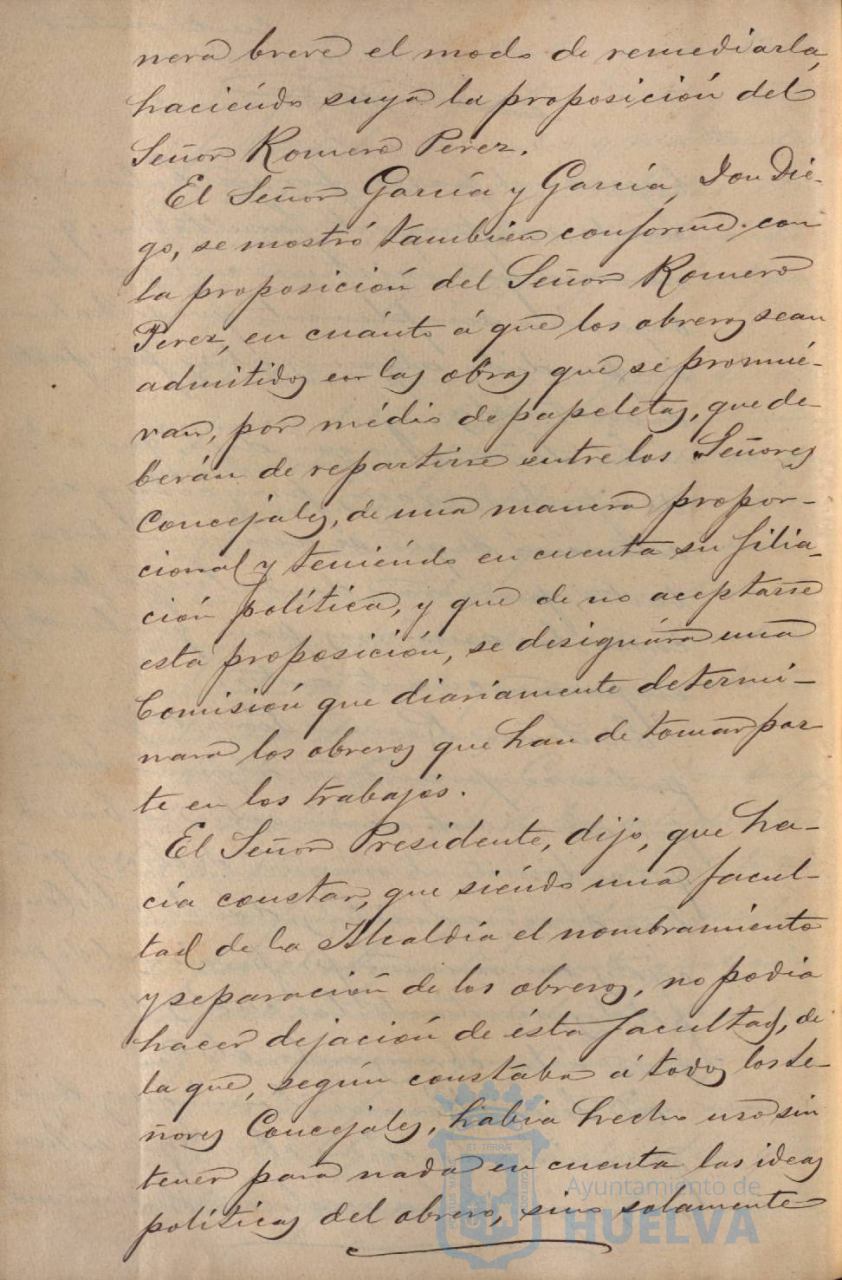 nera breve el modo de remediarla,
haciéndo suya la proposición del
Señor Romero Perez.
El Señor García y García, Don Die-
go, se mostró tambien conforme con
la proposición del Señor Romero
Perez, en cuánto á que los obreros sean
admitidos en las obras que se promué-
van, por médio de papeletas, que de-
berán de repartirse entre los Señores
Concejales, de una manera propor-
cional y teniéndo en cuenta su filia-
ción política, y que de no aceptarse
esta proposición, se designára una
Comisión que diariamente determi-
nara los obreros que han de tomar par-
te en los trabajos.
El Señor Presidente, dijo, que ha-
cía constar, que siéndo una facul-
tad de la Alcaldía el nombramiento
y separación de los obreros, no podia
hacer dejación de ésta facultad, de
la que, según constaba á todos los Se-
ñores Concejales, habia hecho uso sin
tener para nada en cuenta las ideas
políticas del obrero, sino solamente
Ayuntamiento de
HUELVA